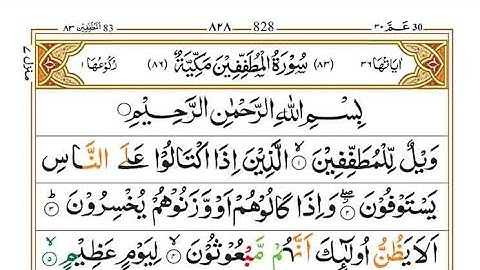 المطففين ٨٣ 83 ٨٢٨ 828 عَمَّ ٣٠ 30
منزل ٧
اٰيَاتُهَا ٣٦ (٨٣) سُوْرَةُ الْمُطَفِّفِيْنَ مَكِّيَّةٌ (٨٦) رُكُوْعُهَا ١
بِسْمِ اللّٰهِ الرَّحْمٰنِ الرَّحِيْمِ
وَيْلٌ لِّلْمُطَفِّفِيْنَ ۙ﴿١﴾ الَّذِيْنَ اِذَا اكْتَالُوْا عَلَى النَّاسِ
يَسْتَوْفُوْنَ ۖ﴿٢﴾ وَاِذَا كَالُوْهُمْ اَوْ وَّزَنُوْهُمْ يُخْسِرُوْنَ ﴿٣﴾
اَلَا يَظُنُّ اُولٰٓئِكَ اَنَّهُمْ مَّبْعُوْثُوْنَ ۙ﴿٤﴾ لِيَوْمٍ عَظِيْمٍ ۙ﴿٥﴾